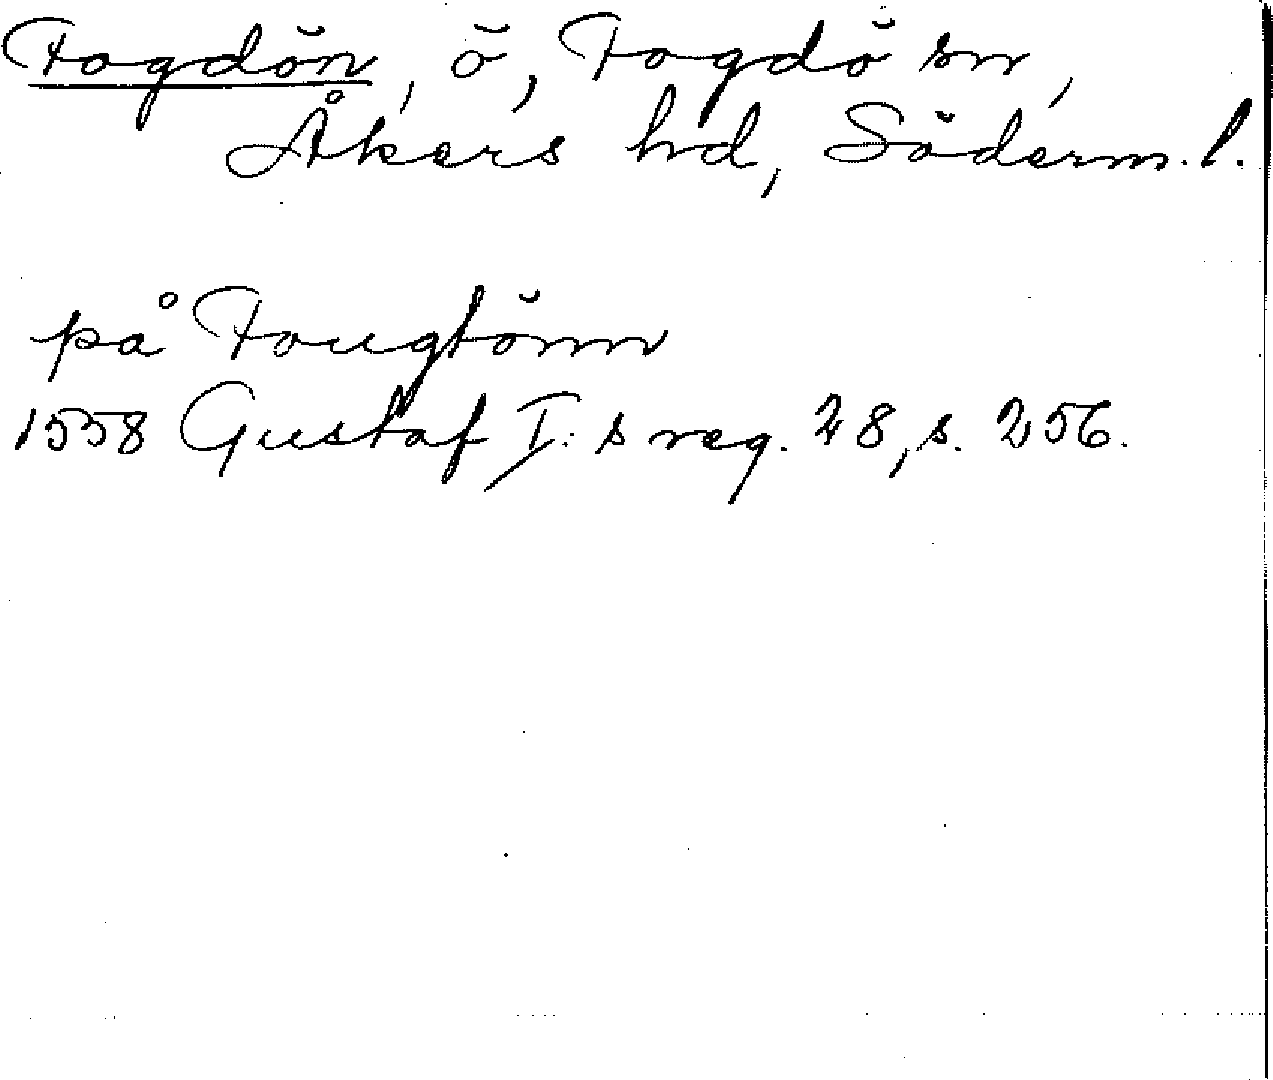 Fogdön, ö, Fogdö sn,
Åkers hd, Söderm. l.
på Fougtönn
1558 Gustaf I:s reg. 28, s. 256.